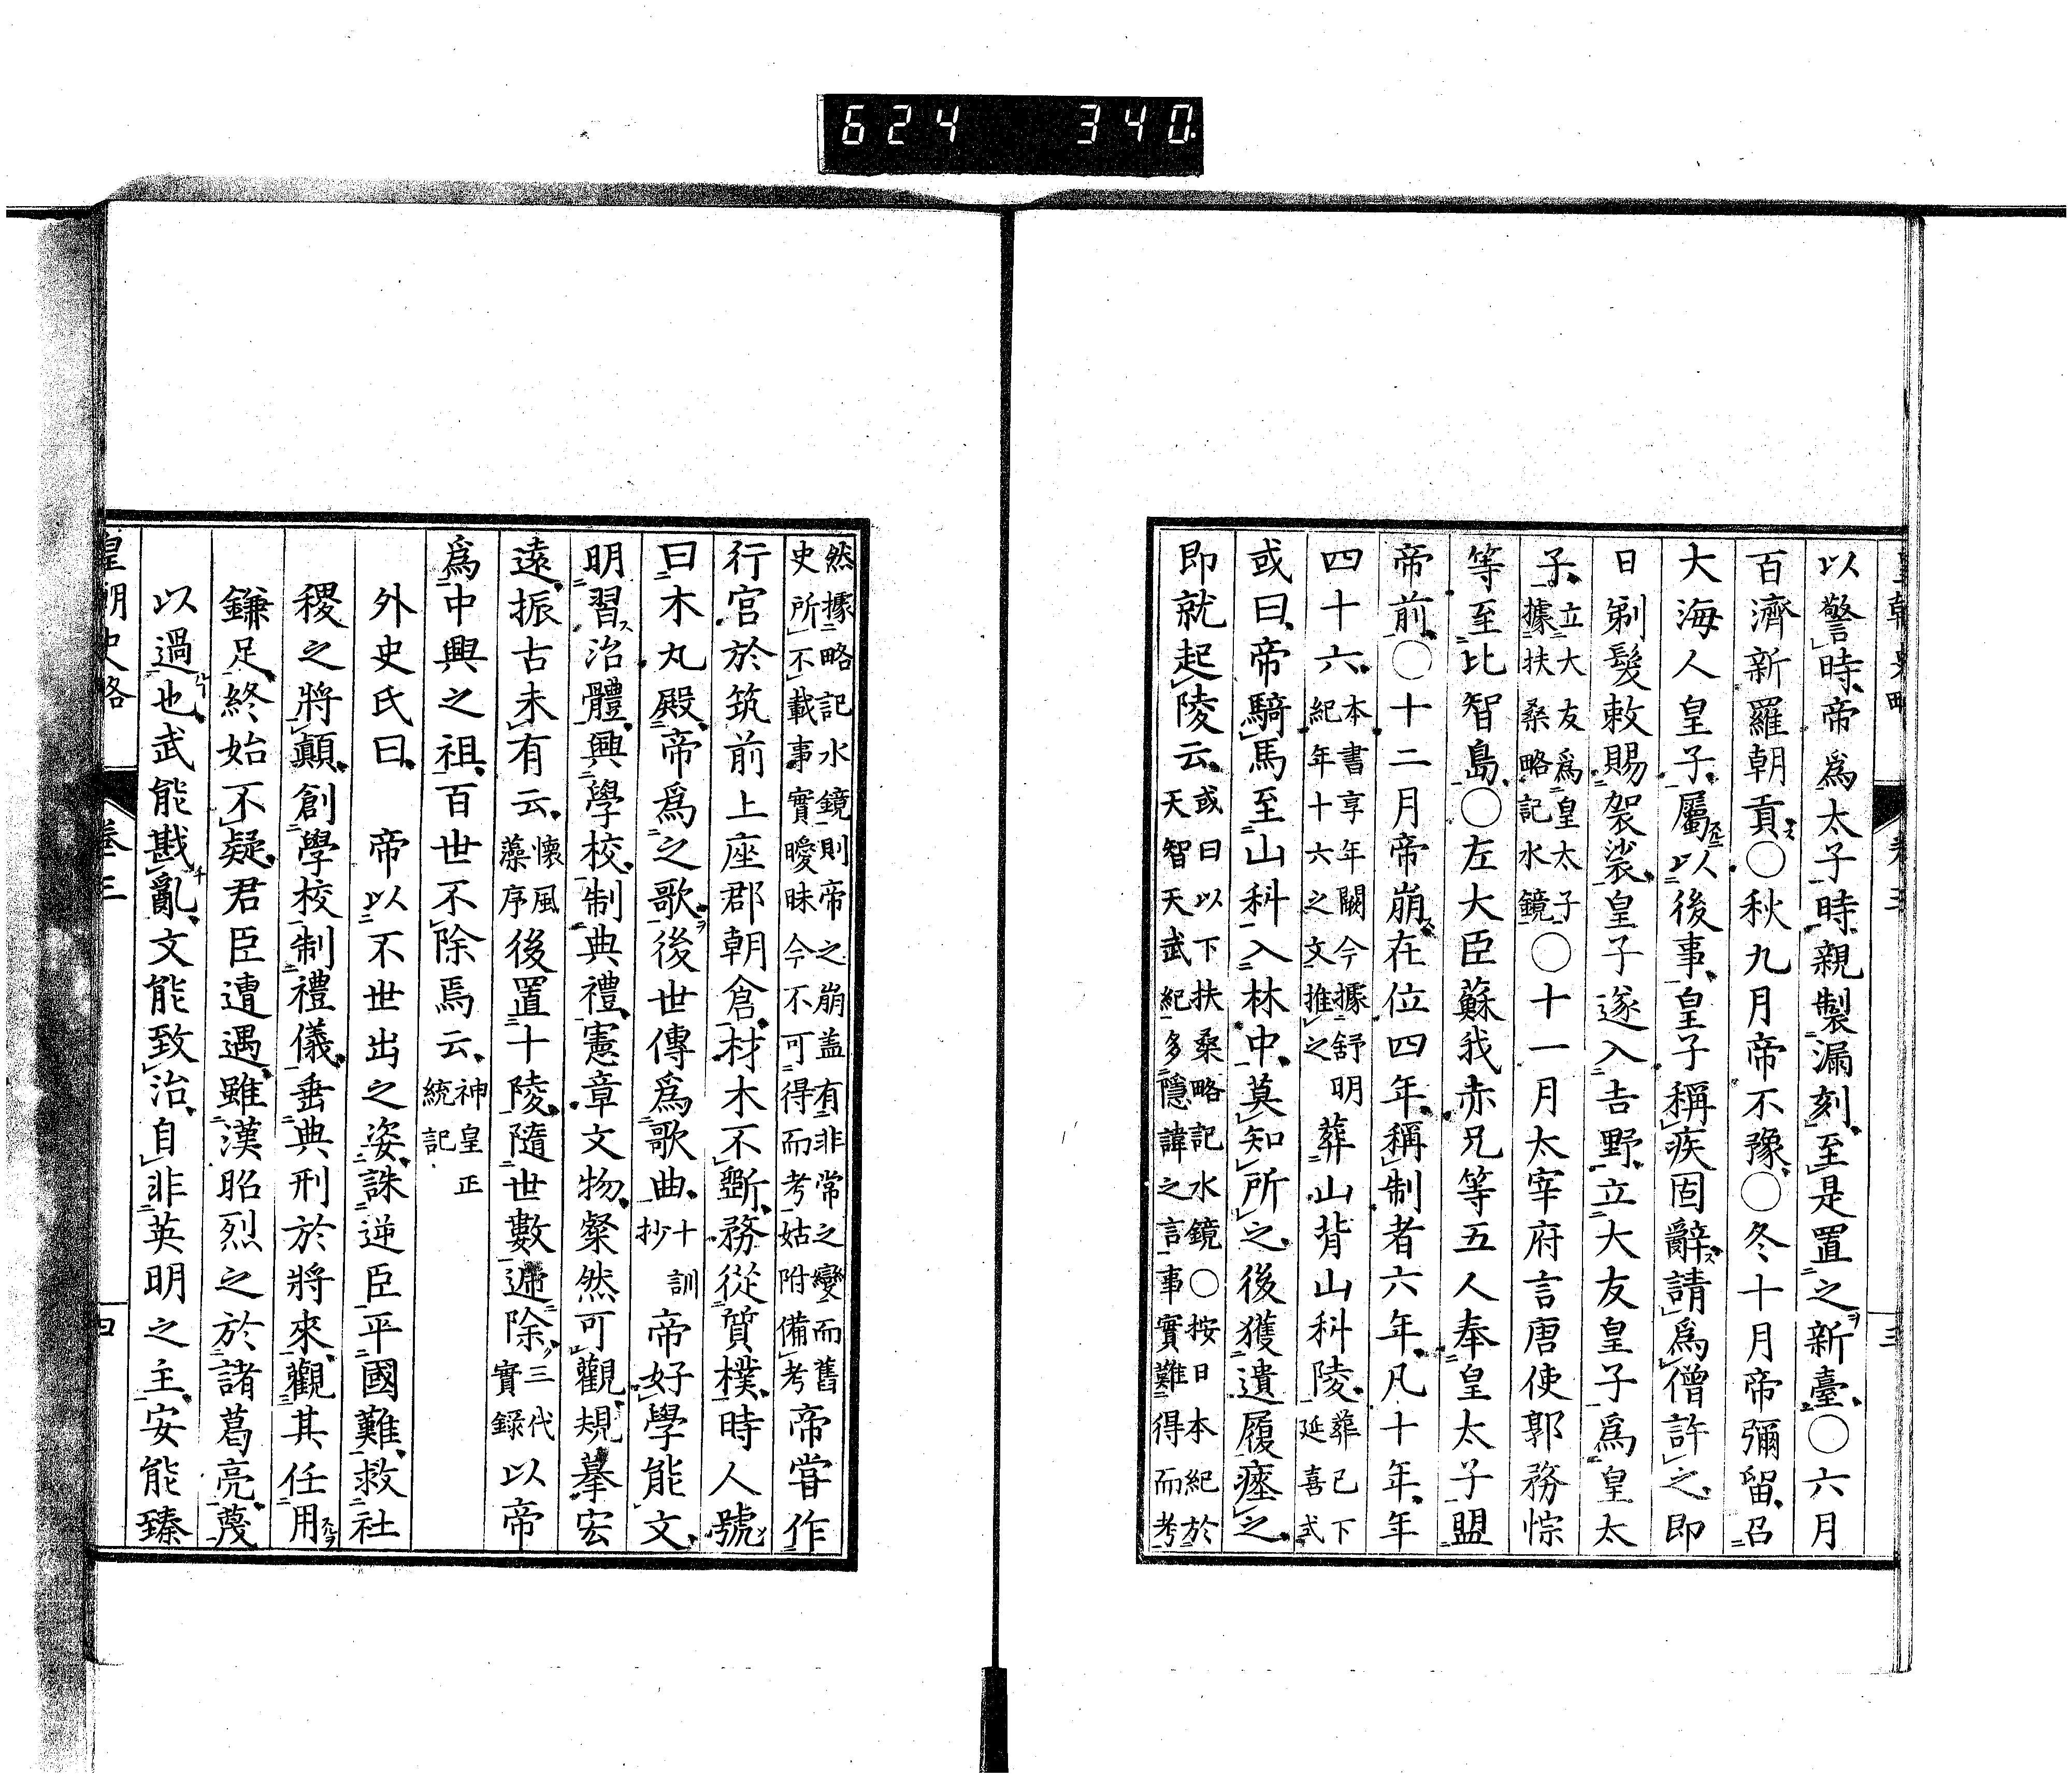 624 340
皇朝史略 卷三 三
以警時帝爲太子時親製漏刻至是置之新臺〇六月
百濟新羅朝貢〇秋九月帝不豫〇冬十月帝彌留召
大海人皇子屬以後事皇子稱疾固辭請爲僧許之即
日剃髮敕賜袈裟皇子遂入吉野立大友皇子爲皇太
子立大友爲皇太子據扶桑略記水鏡〇十一月太宰府言唐使郭務悰
等至比智島〇左大臣蘇我赤兄等五人奉皇太子盟
帝前〇十二月帝崩在位四年稱制者六年凡十年年
四十六本書享年闕今據舒明紀年十六之文推之葬山背山科陵葬已下延喜式
或曰帝騎馬至山科入林中莫知所之後獲遺履瘞之
即就起陵云或曰以下扶桑略記水鏡〇按日本紀於天智天武紀多隱諱之言事實難得而考
然據略記水鏡則帝之崩盖有非常之變而舊史所不載事實曖昧今不可得而考姑附備考帝甞作
行宮於筑前上座郡朝倉材木不斲務從質樸時人號
曰木丸殿帝爲之歌後世傳爲歌曲十訓抄帝好學能文
明習治體興學校制典禮憲章文物粲然可觀規摹宏
遠振古未有云懷風藻序後置十陵隨世數遞除三代實録以帝
爲中興之祖百世不除焉云神皇正統記
外史氏曰 帝以不世出之姿誅逆臣平國難救社
稷之將顛創學校制禮儀垂典刑於將來觀其任用
鎌足終始不疑君臣遭遇雖漢昭烈之於諸葛亮蔑
以過也武能戡亂文能致治自非英明之主安能臻
皇朝史略 卷三 四